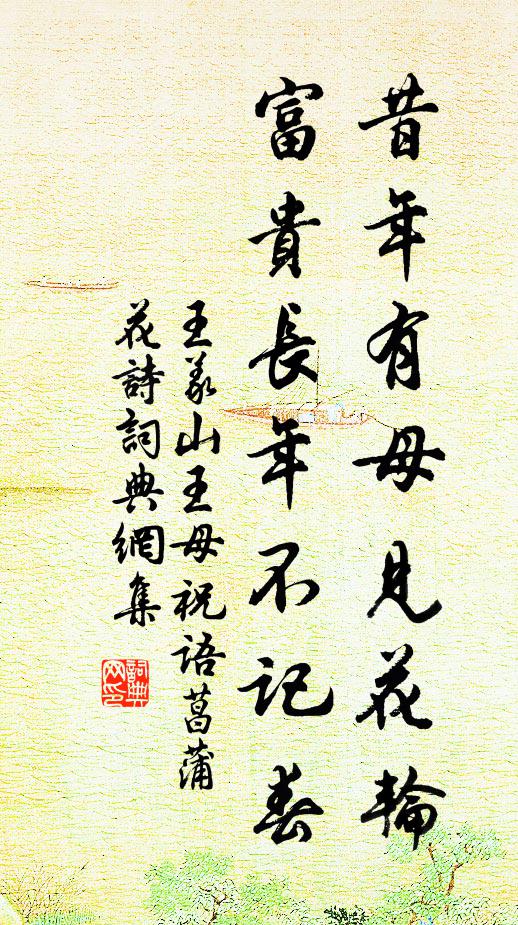 昔年有母見花輪
富貴長年不記春
王義山王母祝語菖蒲
花詩詞典網集
詞典網印